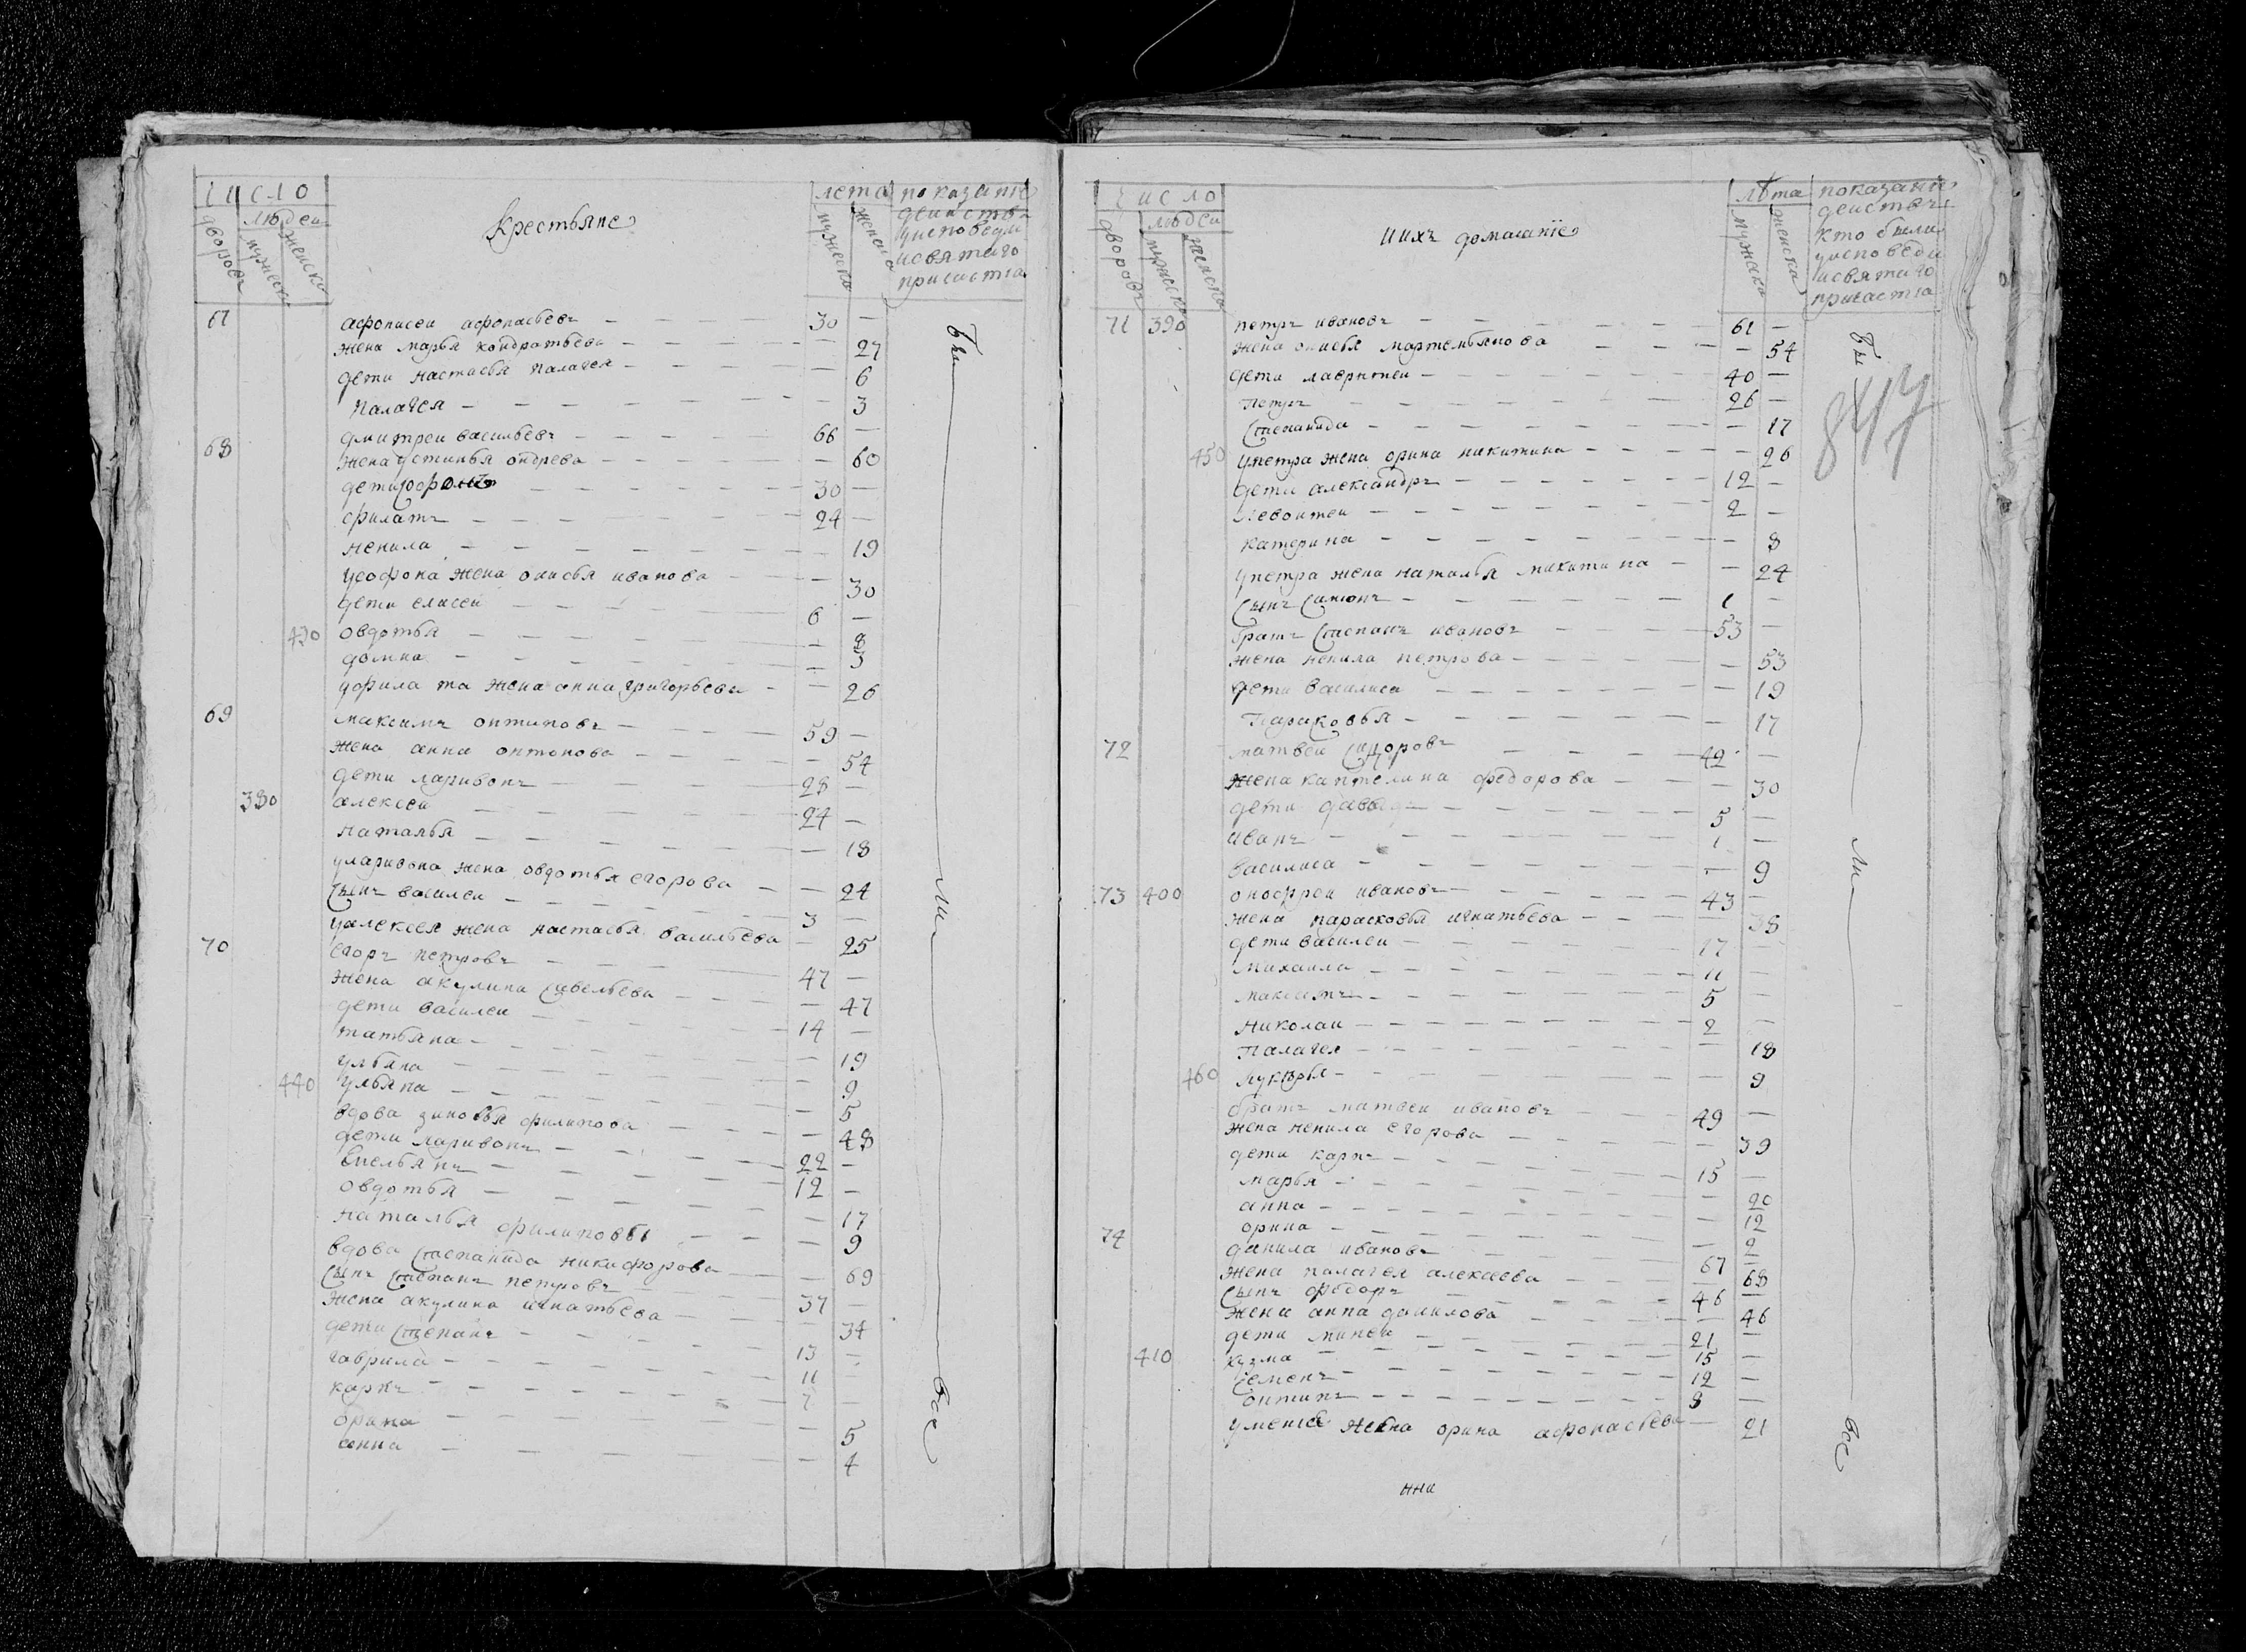 число
дворовъ
людеи
мужеска
женска
крестьяне
лета
мужеска
женска
показание
деиства
уисповеди
исвятаго
причастıа
67 афонасеи афонасьевъ 30 —
жена марья кондратьева — 27
дети настасья палагея — 6
палагея — 3
68 дмитреи васильевъ 66 —
жена устинья ондрева — 60
дети 30 —
филатъ 24 —
ненила — 19
жена онисья иванова — 30
дети елисеи 6 —
430 овдотья — 8
домна — 3
уфила та жена анна григорьева — 26
69 максимъ онтиповъ 59 —
жена анна онтонова — 54
дети ларивонъ 28 —
380 алексеи 24 —
наталья — 18
уларивона жена овдотья егорова — 24
сынъ василеи 3 —
уалексея жена настасья васильева — 25
70 егоръ петровъ 47 —
жена акулина савельева — 47
дети василеи 14 —
татьяна — 19
ульяна — 9
440 ульяна — 5
вдова зиновья филипова — 48
дети ларивонъ 22 —
емельянъ 12 —
овдотья — 17
наталья филиповы — 9
вдова степанида никифорова — 69
сынъ степанъ петровъ 37 —
жена акулина игнатьева — 34
дети степанъ 13 —
гаврила 11 —
карпъ 7 —
орина — 5
анна — 4
бы
ли
все
число
дворовъ
людеи
мужеска
женска
иихъ домашнïе
лѣта
мужеска
женска
показание
деиствъ
кто были
уисповеди
исвятаго
причастıа
71 390 петръ ивановъ 61 —
жена онисья мартемьянова — 54
дети лаврентеи 40 —
петръ 26 —
степанида — 17
450 упетра жена орина никитина — 26
дети александръ 12 —
левонтеи 2 —
катерина — 8
упетра жена наталья никитина — 24
сынъ симионъ 1 —
братъ степанъ ивановъ 53 —
жена ненила петрова — 53
дети василиса — 19
параковья — 17
72 матвеи сидоровъ 42 —
жена каптелина федорова — 30
дети давыдъ 5 —
иванъ 1 —
василиса — 9
73 400 оноффреи ивановъ 43 —
жена парасковья игнатьева — 38
дети василеи 17 —
михаила 11 —
максимъ 5 —
николаи 2 —
палагея — 18
460 лукѣрья — 9
братъ матвеи ивановъ 49 —
жена ненила егорова — 39
дети карпъ 15 —
марья — 20
анна — 12
орина — 2
74 данила ивановъ 67 —
жена палагея алексеева — 68
сынъ федоръ 46 —
жена анна данилова — 46
дети минеи 21 —
410 кузма 15 —
семенъ 12 —
онтипъ 8 —
жена орина афонасьева — 21
бы
ли
все
нна